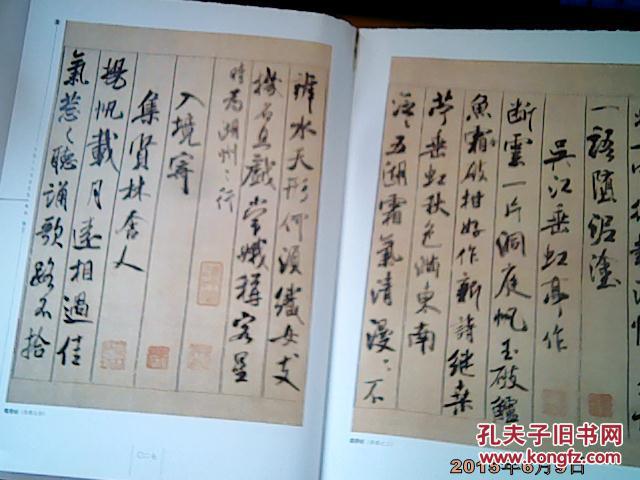 一語隨泥塗
吳江垂虹亭作
断雲一片洞庭帆玉破鱸
魚霜破柑好作新詩継桑
苧垂虹秋色滿東南
泛〻五湖霜氣清漫〻不
辨水天形何須織女支
機石且戲常娥稱客星
時為湖州之行
入境寄
集賢林舍人
揚帆載月遠相過佳
氣葱〻聽誦歌路不拾
〇二七
孔夫子旧书网
2015年6月9日